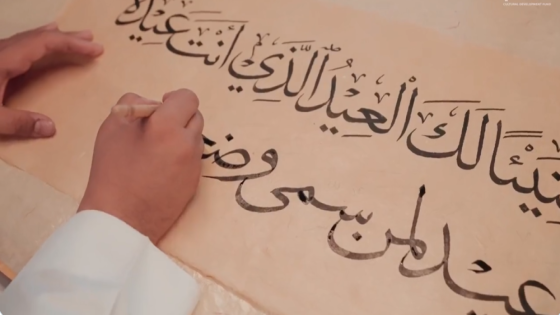 هَنِيئًا لَكَ الْعِيدُ الَّذِي أَنْتَ عِيدُهُ
وعيد لمن سمى وضـ